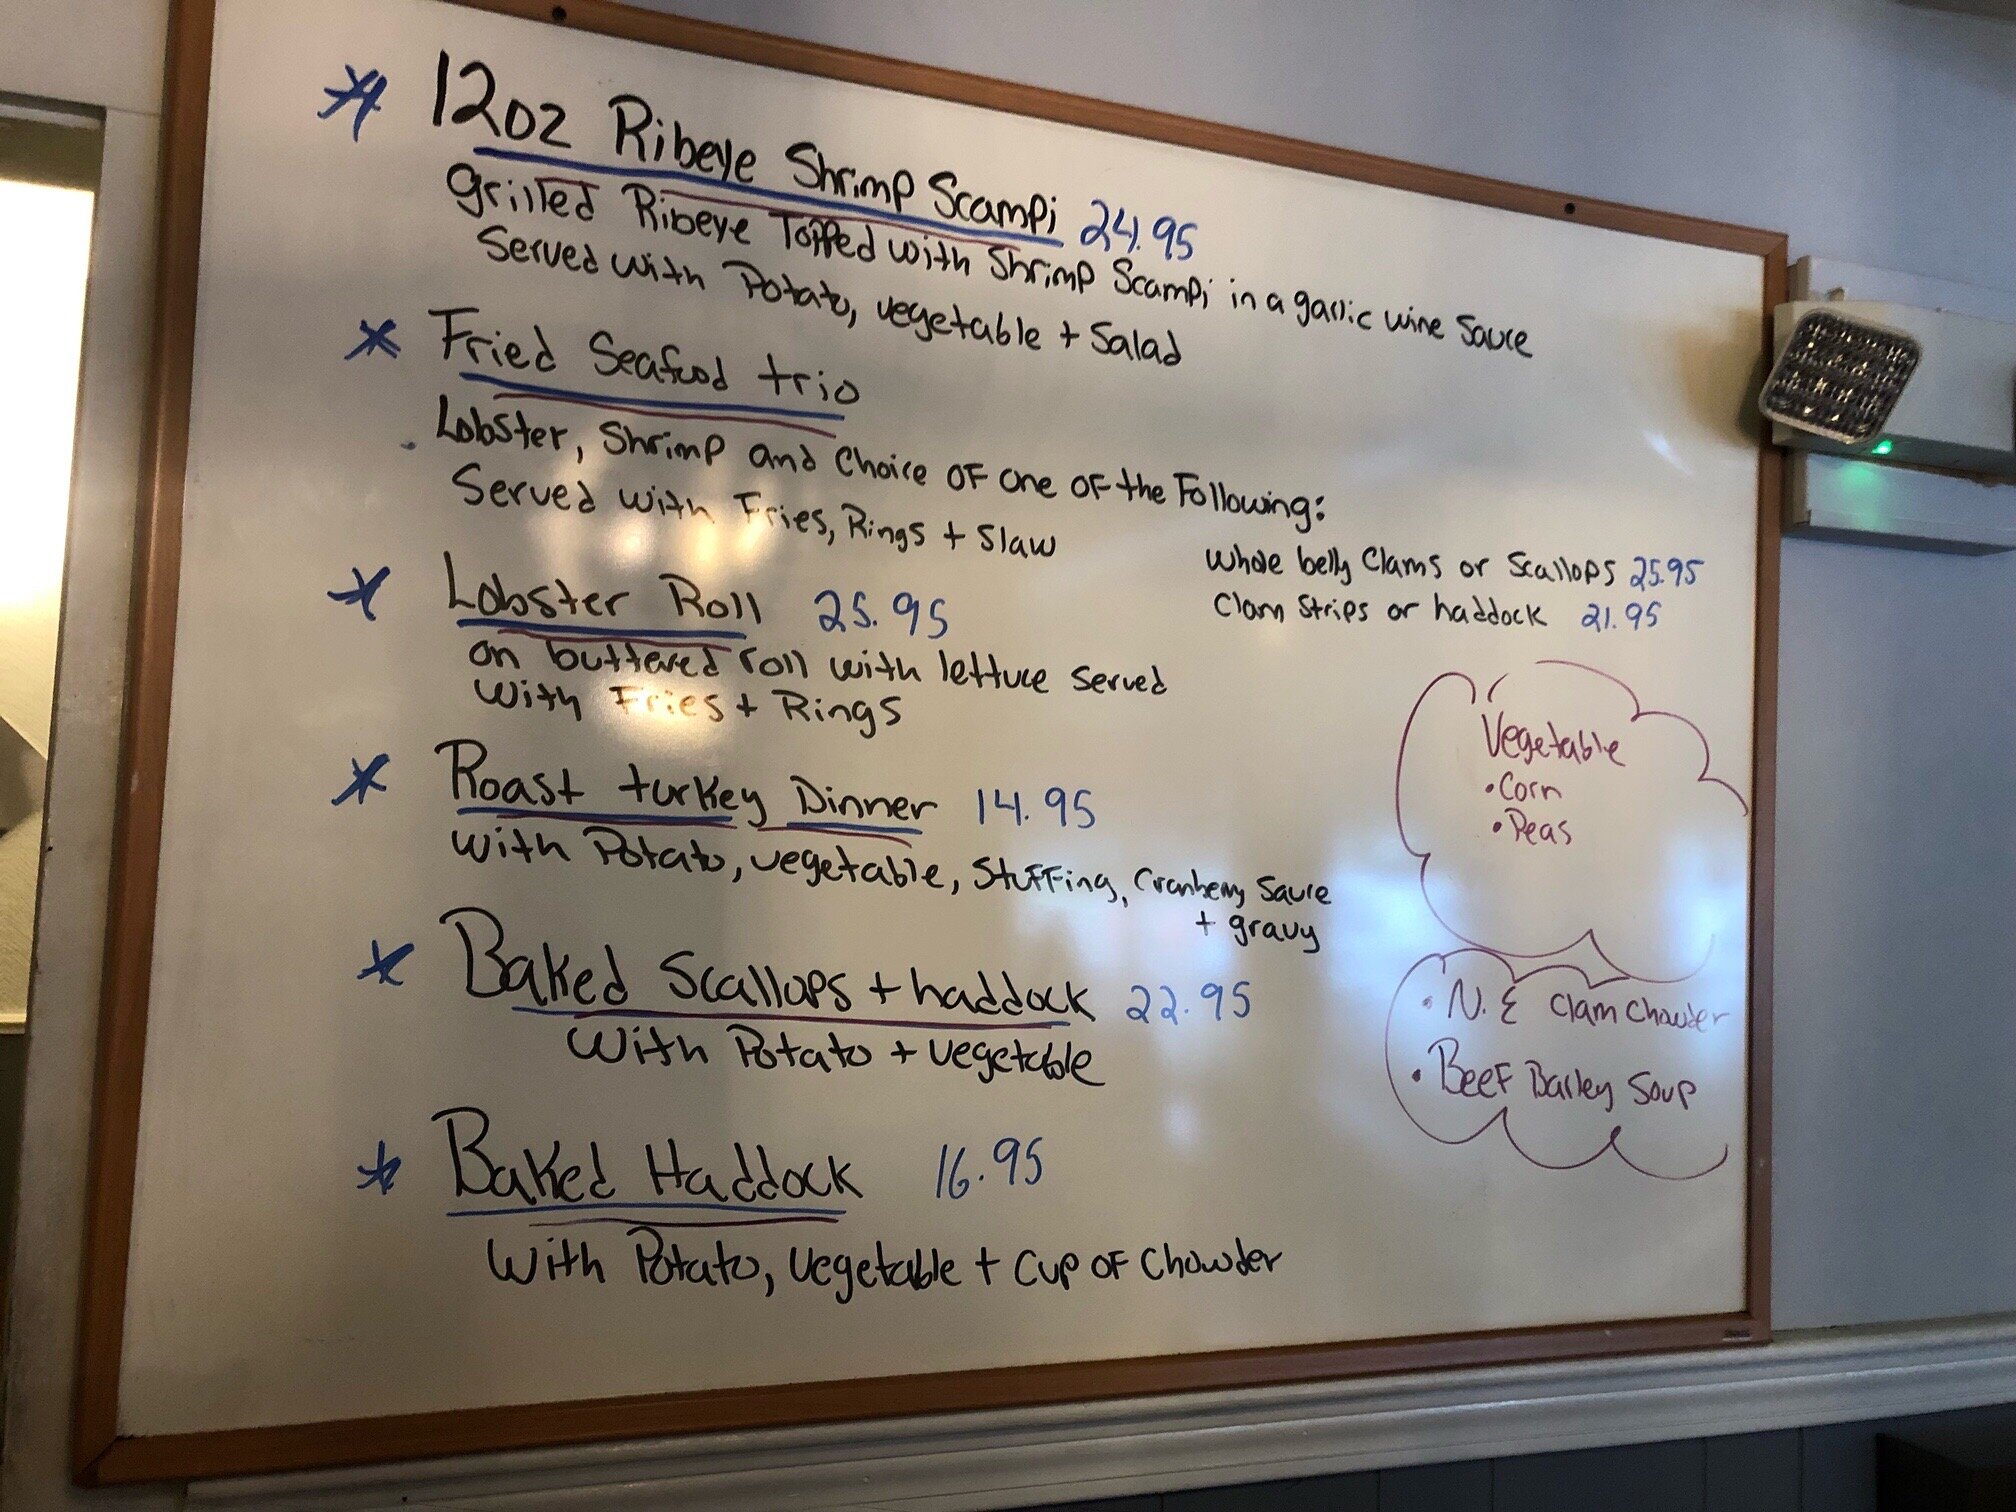 12oz Ribeye Shrimp Scampi 24.95
grilled Ribeye Topped with Shrimp Scampi in a garlic wine Sauce
Served with Potato, vegetable + Salad
Fried Seafood trio
Lobster, Shrimp and Choice OF one OF the Following:
Served with Fries, Rings + Slaw
Whole belly Clams or Scallops 25.95
Clam Strips or haddock 21.95
Lobster Roll 25.95
on buttered roll with lettuce served
with Fries + Rings
Roast turkey Dinner 14.95
with Potato, vegetable, StuFFing, Cranberry Sauce
+ gravy
Baked Scallops + haddock 22.95
With Potato + vegetable
Baked Haddock 16.95
With Potato, Vegetable + Cup OF Chowder
Vegetable
• Corn
• Peas
• N.E Clam Chowder
• BeeF Barley Soup